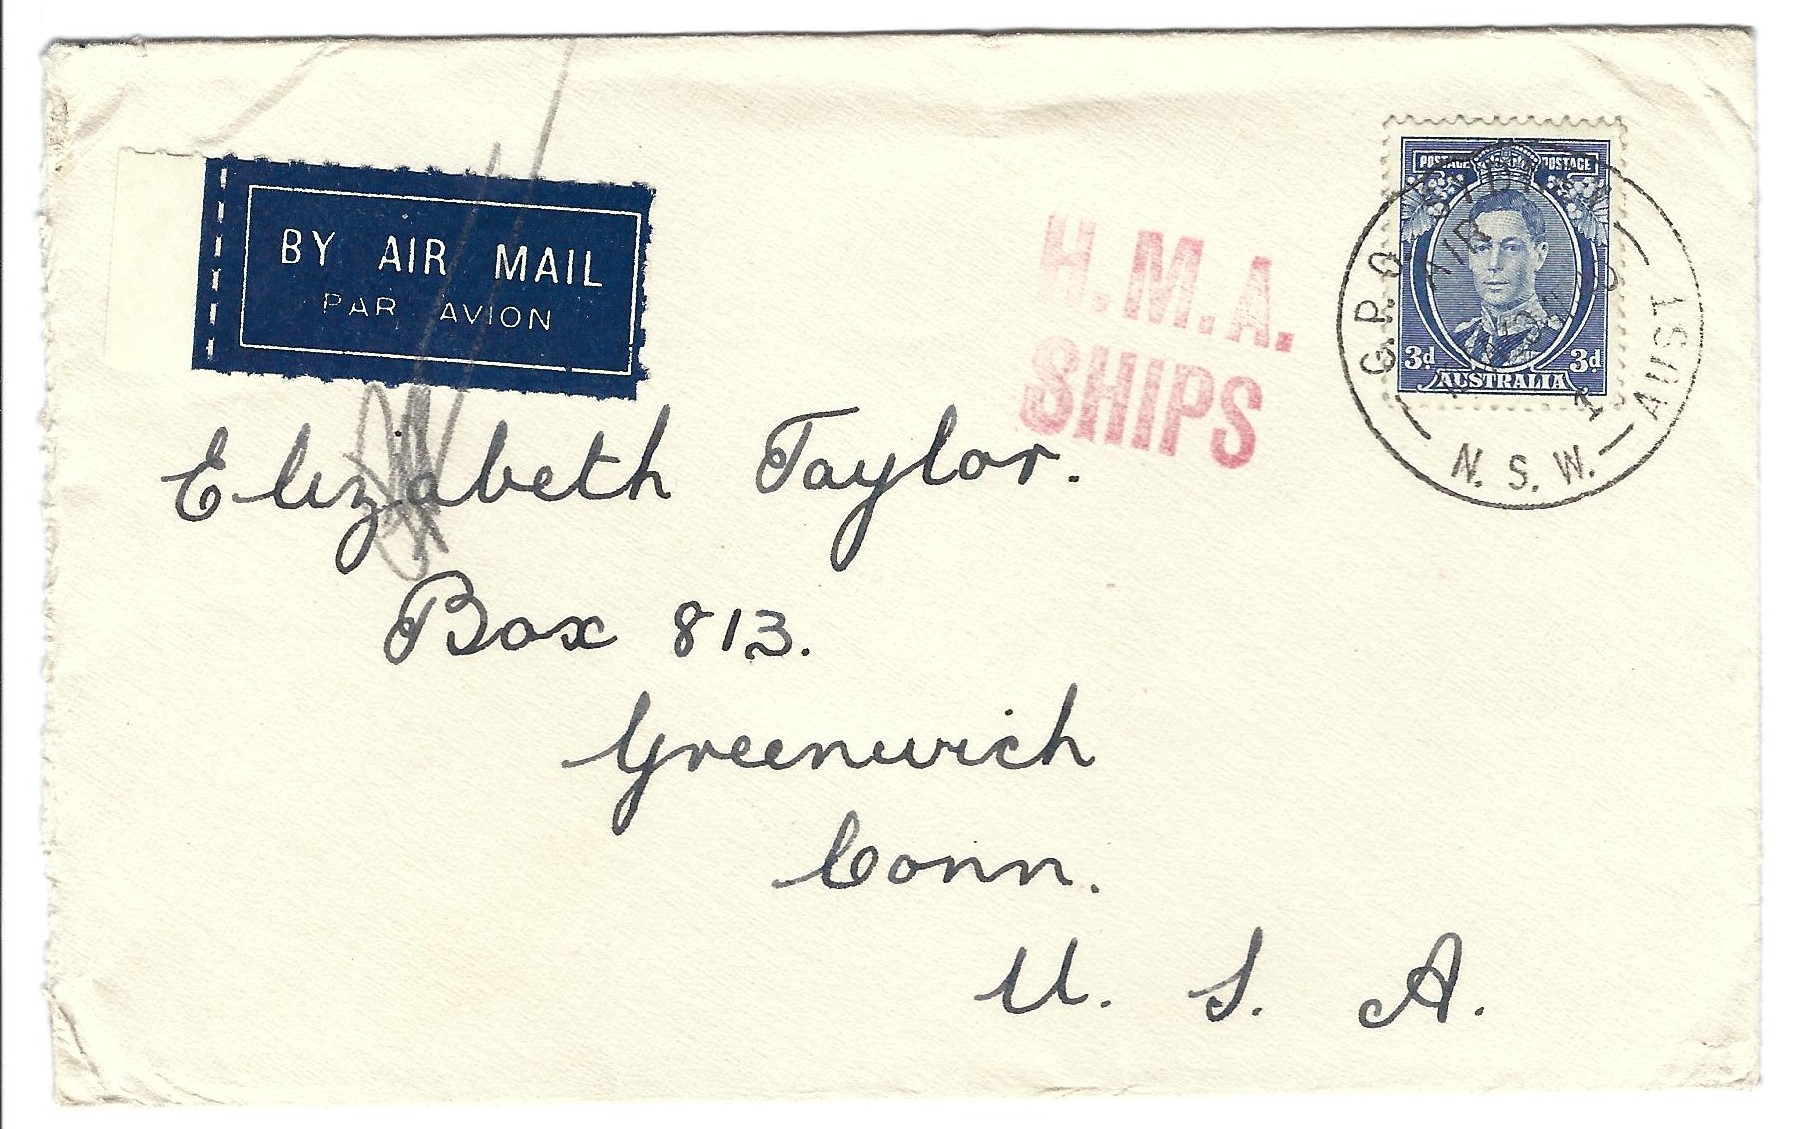 BY AIR MAIL
PAR AVION
H.M.A.
SHIPS
POSTAGE POSTAGE
3d 3d
AUSTRALIA
G.P.O. SYDNEY
AIR
1
N.S.W. AUST
Elizabeth Taylor.
Box 813.
Greenwich
Conn.
U. S. A.